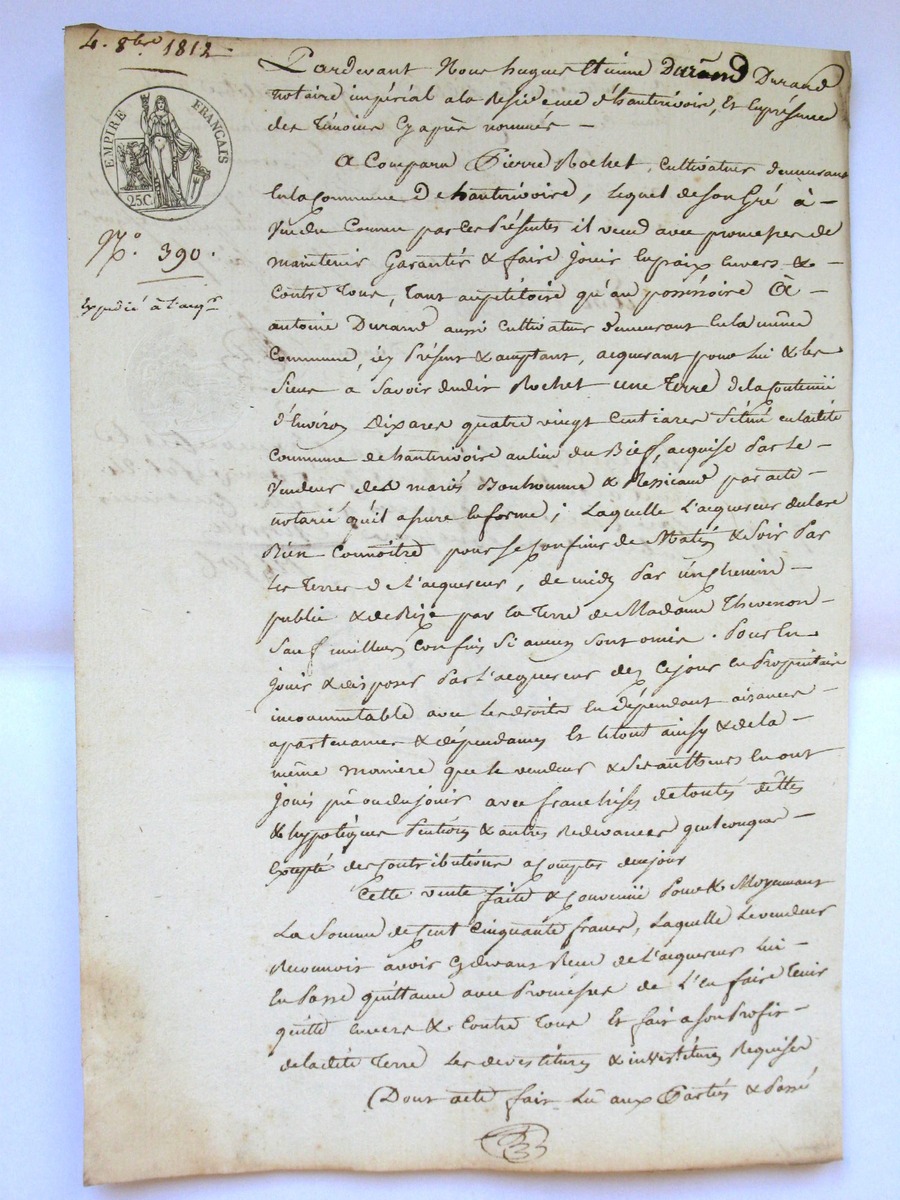 4. 8bre 1812.
EMPIRE FRANÇAIS
25.C.
No. 390.
Expedié à l'acqr
Pardevant Nous hugues Etienne Durand Durand
notaire impérial a la Residence d'hauterivoir, Et en présence
des temoins Cyaprès nommés —
A Comparu Pierre Rochet, Cultivateur demeurant
En la Commune De hauterivoire, lequel de son Gré à —
Vendu Comme par les Présentes il vend avec promesses de
maintenir Garantir & faire jouir En paix Envers & —
Contre Tous, tant au petitoire qu'au posséssoire À —
antoine Durand aussi Cultivateur demeurant En la même
Commune, icy Présent & acceptant, acquerant pour lui & les
Siens à Savoir dudit Rochet une Terre de la Contenüe
d'Environ Dix ares quatre vingt Centiares Située en ladite
Commune de hauterivoire au lieu du Bieff, acquise Par le —
Vendeur des mariés Bonhomme & par acte —
notarié qu'il assure En forme; Laquelle L'acquereur declare
Bien Connoitre pour Se Confiner de Matin & Soir Par
les Terres de L'acquereur, de midy Par un Chemin —
public & de Bize par la Terre de Madame Thevenon —
Sauf meilleurs Confins Si aucuns Sont omis. Pour En
jouir & disposer Par L'acquereur dez Cejour En Propriétaire
incommutable avec les droits En dépendant aizances —
apartenances & dépendances Et le tout ainsy & de la —
même maniere que le vendeur & Ses autheurs En ont
jouis pû ou du jouir avec franchises de toutes dettes
& hypotèques Pentions & autres Redevances quelconque —
Excepté des Contributions a Compter de ce jour
Cette vente faite & Convenüe Pour & Moyennant
La Somme de Cent Cinquante francs, Laquelle Le vendeur
Reconnoit avoir Cy devant Reçue de L'acquereur lui —
En Passe quittance avec Promesses de L'en faire Tenir
quitte Envers & Contre Tous Et fait a Son Profit —
de ladite Terre Les devestitures & investitures Requises
Dont acte fait Lû aux Parties & Passé